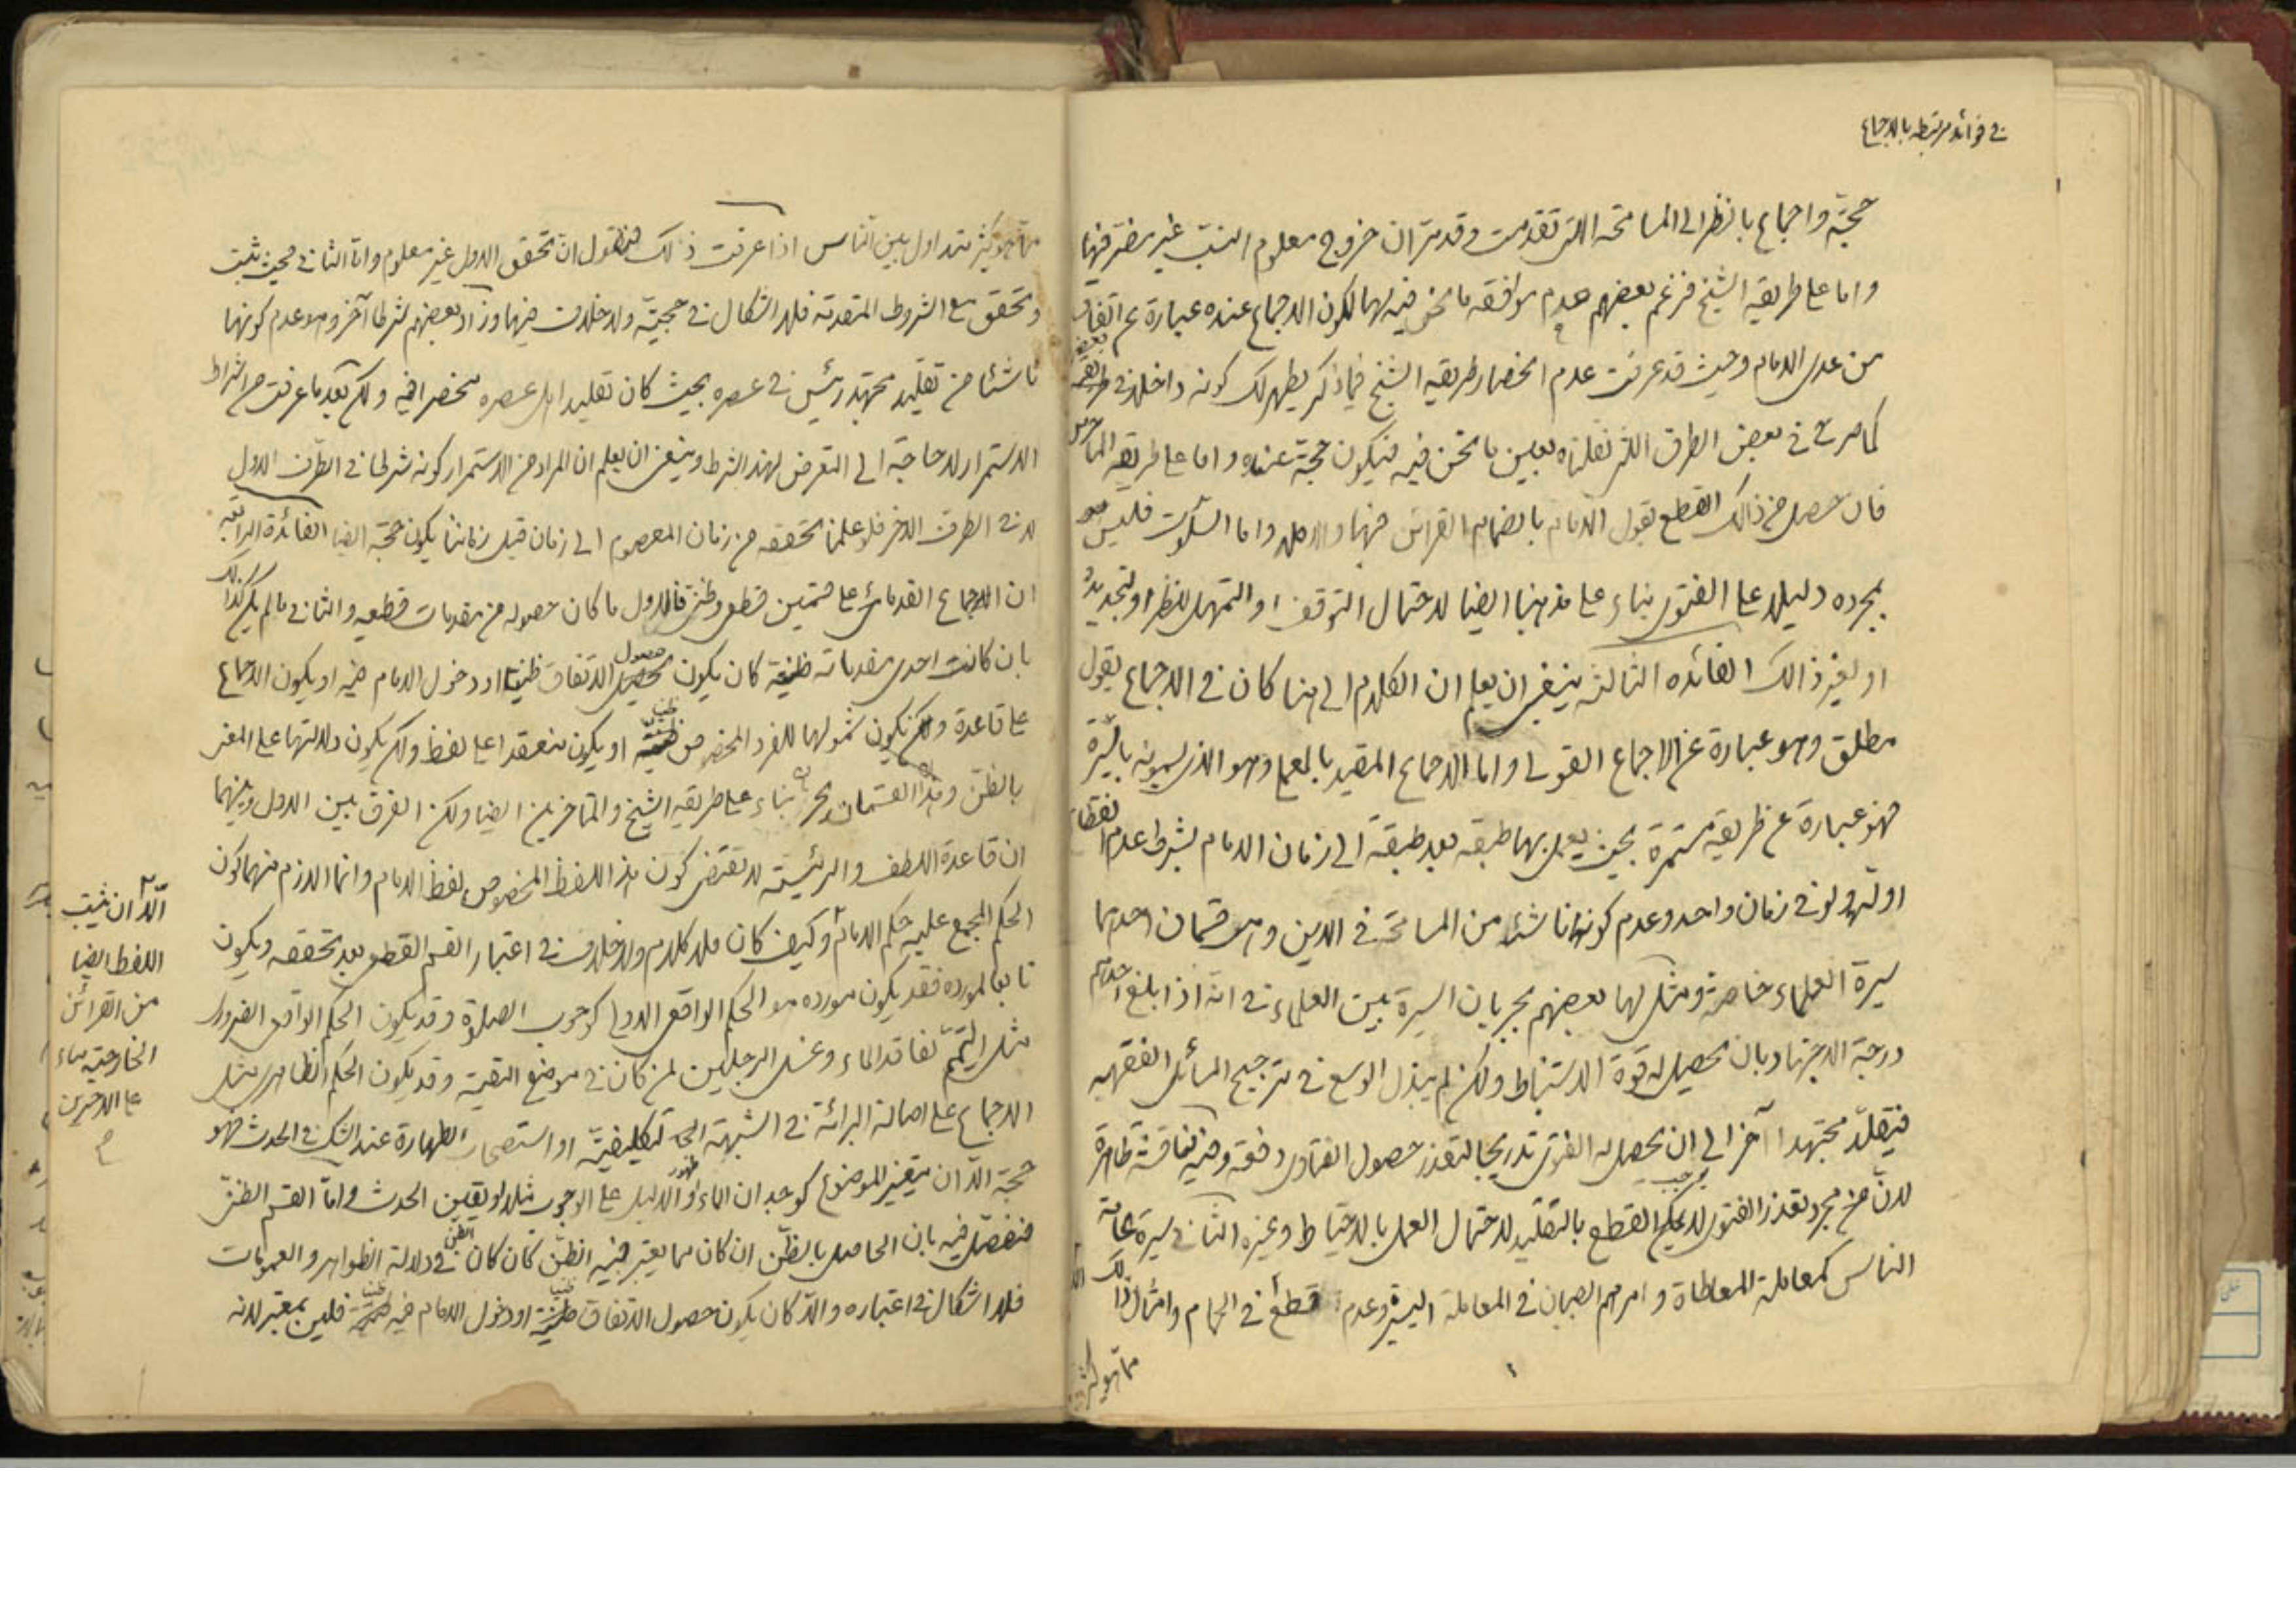 في فوائد مرتبطه بالاجماع
حجّة واجماع بالنظر الى المسامحة اللتى تقدمت وقد مرّ ان خروج معلوم النسب غير مضر فيها
واما على طريقه الشيخ فزعم بعضهم عدم موافقه ما نحن فيه لها لكون الاجماع عنده عبارة عن اتفاق
من عدى الامام وحيث قد عرفت عدم انحصار طريقه الشيخ فيما ذكر يظهر لك كونه داخلا في طريقته
كما صرح في بعض الطرق اللتى نقلناه بعين ما نحن فيه فيكون حجة عنده واما على طريقه المتاخرين
فان حصل من ذالك القطع بقول الامام بانضمام القرائن فيها والا فلا واما السكوت فليس هو
بمجرده دليلا على الفتوى بناء على مذهبنا ايضا لاحتمال التوقف او التمهل للنظر او لتجديده
او لغير ذالك الفائده الثالثه ينبغى ان يعلم ان الكلام الى هنا كان في الاجماع بقول
مطلق وهو عبارة عن الاجماع القولى واما الاجماع المقيد بالعملى وهو الذى يسمونه بالسّيرة
فهو عبارة عن طريقه مستمرة بحيث يعمل بها طبقه بعد طبقة الى زمان الامام بشرط عدم انقطاع
اولها ولو في زمان واحد وعدم كونها ناشئه من المسامحة في الدين وهى قسمان احدهما
سيرة العلماء خاصة ومثل لها بعضهم بجريان السيرة بين العلماء في انه اذا بلغ احدهم
درجة الاجتهاد بان يحصل له قوّة الاستنباط ولكن لم يبذل الوسع في ترجيح المسائل الفقهيه
فيقلّد مجتهدا آخر الى ان يحصل له الفتوى تدريجا لتعذر حصول الفتاوى دفعة وفيه مناقشة ظاهرة
لانّ من مجرد تعذر الفتوى لا يمكن القطع بالتقليد لاحتمال العمل بالاحتياط وغيره الثانى سيرة عامة
الناس كمعاملة المعاطاة و امرهم الصبيان في المعاملة اليسيرة وعدم قطع في الحمام وامثال ذالك
مما هو كثير
مما هو كثير متداول بين الناس اذا عرفت ذالك فنقول ان تحقق الاول غير معلوم وامّا الثانى فحيث ثبت
وتحقق مع الشروط المتقدمة فلا اشكال في حجيّته ولا خلاف فيها وزاد بعضهم شرطا آخر وهو عدم كونها
ناشئا من تقليد مجتهد رئيس في عصره بحيث كان تقليد اهل عصره منحصرا فيه ولكن بعد ما عرفت من اشتراط
الاستمرار لا حاجة الى التعرض لهذا الشرط وينبغى ان يعلم ان المراد من الاستمرار كونه شرطا في الطرف الاول
لا في الطرف الاخر فلو علمنا تحققه من زمان المعصوم الى زمان قبل زماننا يكون حجّة ايضا الفائدة الرابعة
ان الاجماع القدمائى على قسمين قطعى وظنى فالاول ما كان حصوله من مقدمات قطعيه والثانى ما لم يكن كذالك
بان كانت احدى مقدماته ظنية كان يكون حصول الاتفاق ظنيا او دخول الامام فيه او يكون الاجماع
على قاعدة ولكن يكون شمولها للفرد المخصوص ظنيا او يكون منعقدا على لفظ ولكن يكون دلالتها على المعنى
بالظن وهذا القسمان يجرى بناء على طريقه الشيخ والمتاخرين ايضا ولكن الفرق بين الاول وبينهما
ان قاعدة اللطف والرئيسيّة لا تقتضى كون هذا اللفظ المخصوص لفظ الامام وانما اللازم منهما كون
الحكم المجمع عليه حكم الامام وكيف كان فلا كلام ولا خلاف في اعتبار القسم القطعى بعد تحققه ويكون
تابعا لمورده فقد يكون مورده هو الحكم الواقعى الاولى كوجوب الصلوة وقد يكون الحكم الواقعى الضرورى
مثل التيمّم لفاقد الماء وغسل الرجلين لمن كان في موضع التقية وقد يكون الحكم الظاهرى مثل
الاجماع على اصالة البرائة في الشبهة التكليفيّة او استصحاب الطهارة عند الشك في الحدث فهو
حجة الّا ان يتغير الموضوع كوجدان الماء او ظهور الدليل على الوجوب مثلا او يقين الحدث وامّا القسم الظنّى
فنفصّل فيه بان الحاصل بالظّن ان كان مما يعتبر فيه الظنّ كان كان الظن في دلالة الظواهر والعمومات
فلا اشكال في اعتباره والّا كان يكون حصول الاتفاق ظنيا او دخول الامام فيه ظنيا فليس بمعتبر لانه
الّا ان يثبت
اللفظ ايضا
من القرائن
الخارجية بناء
على الاخيرين